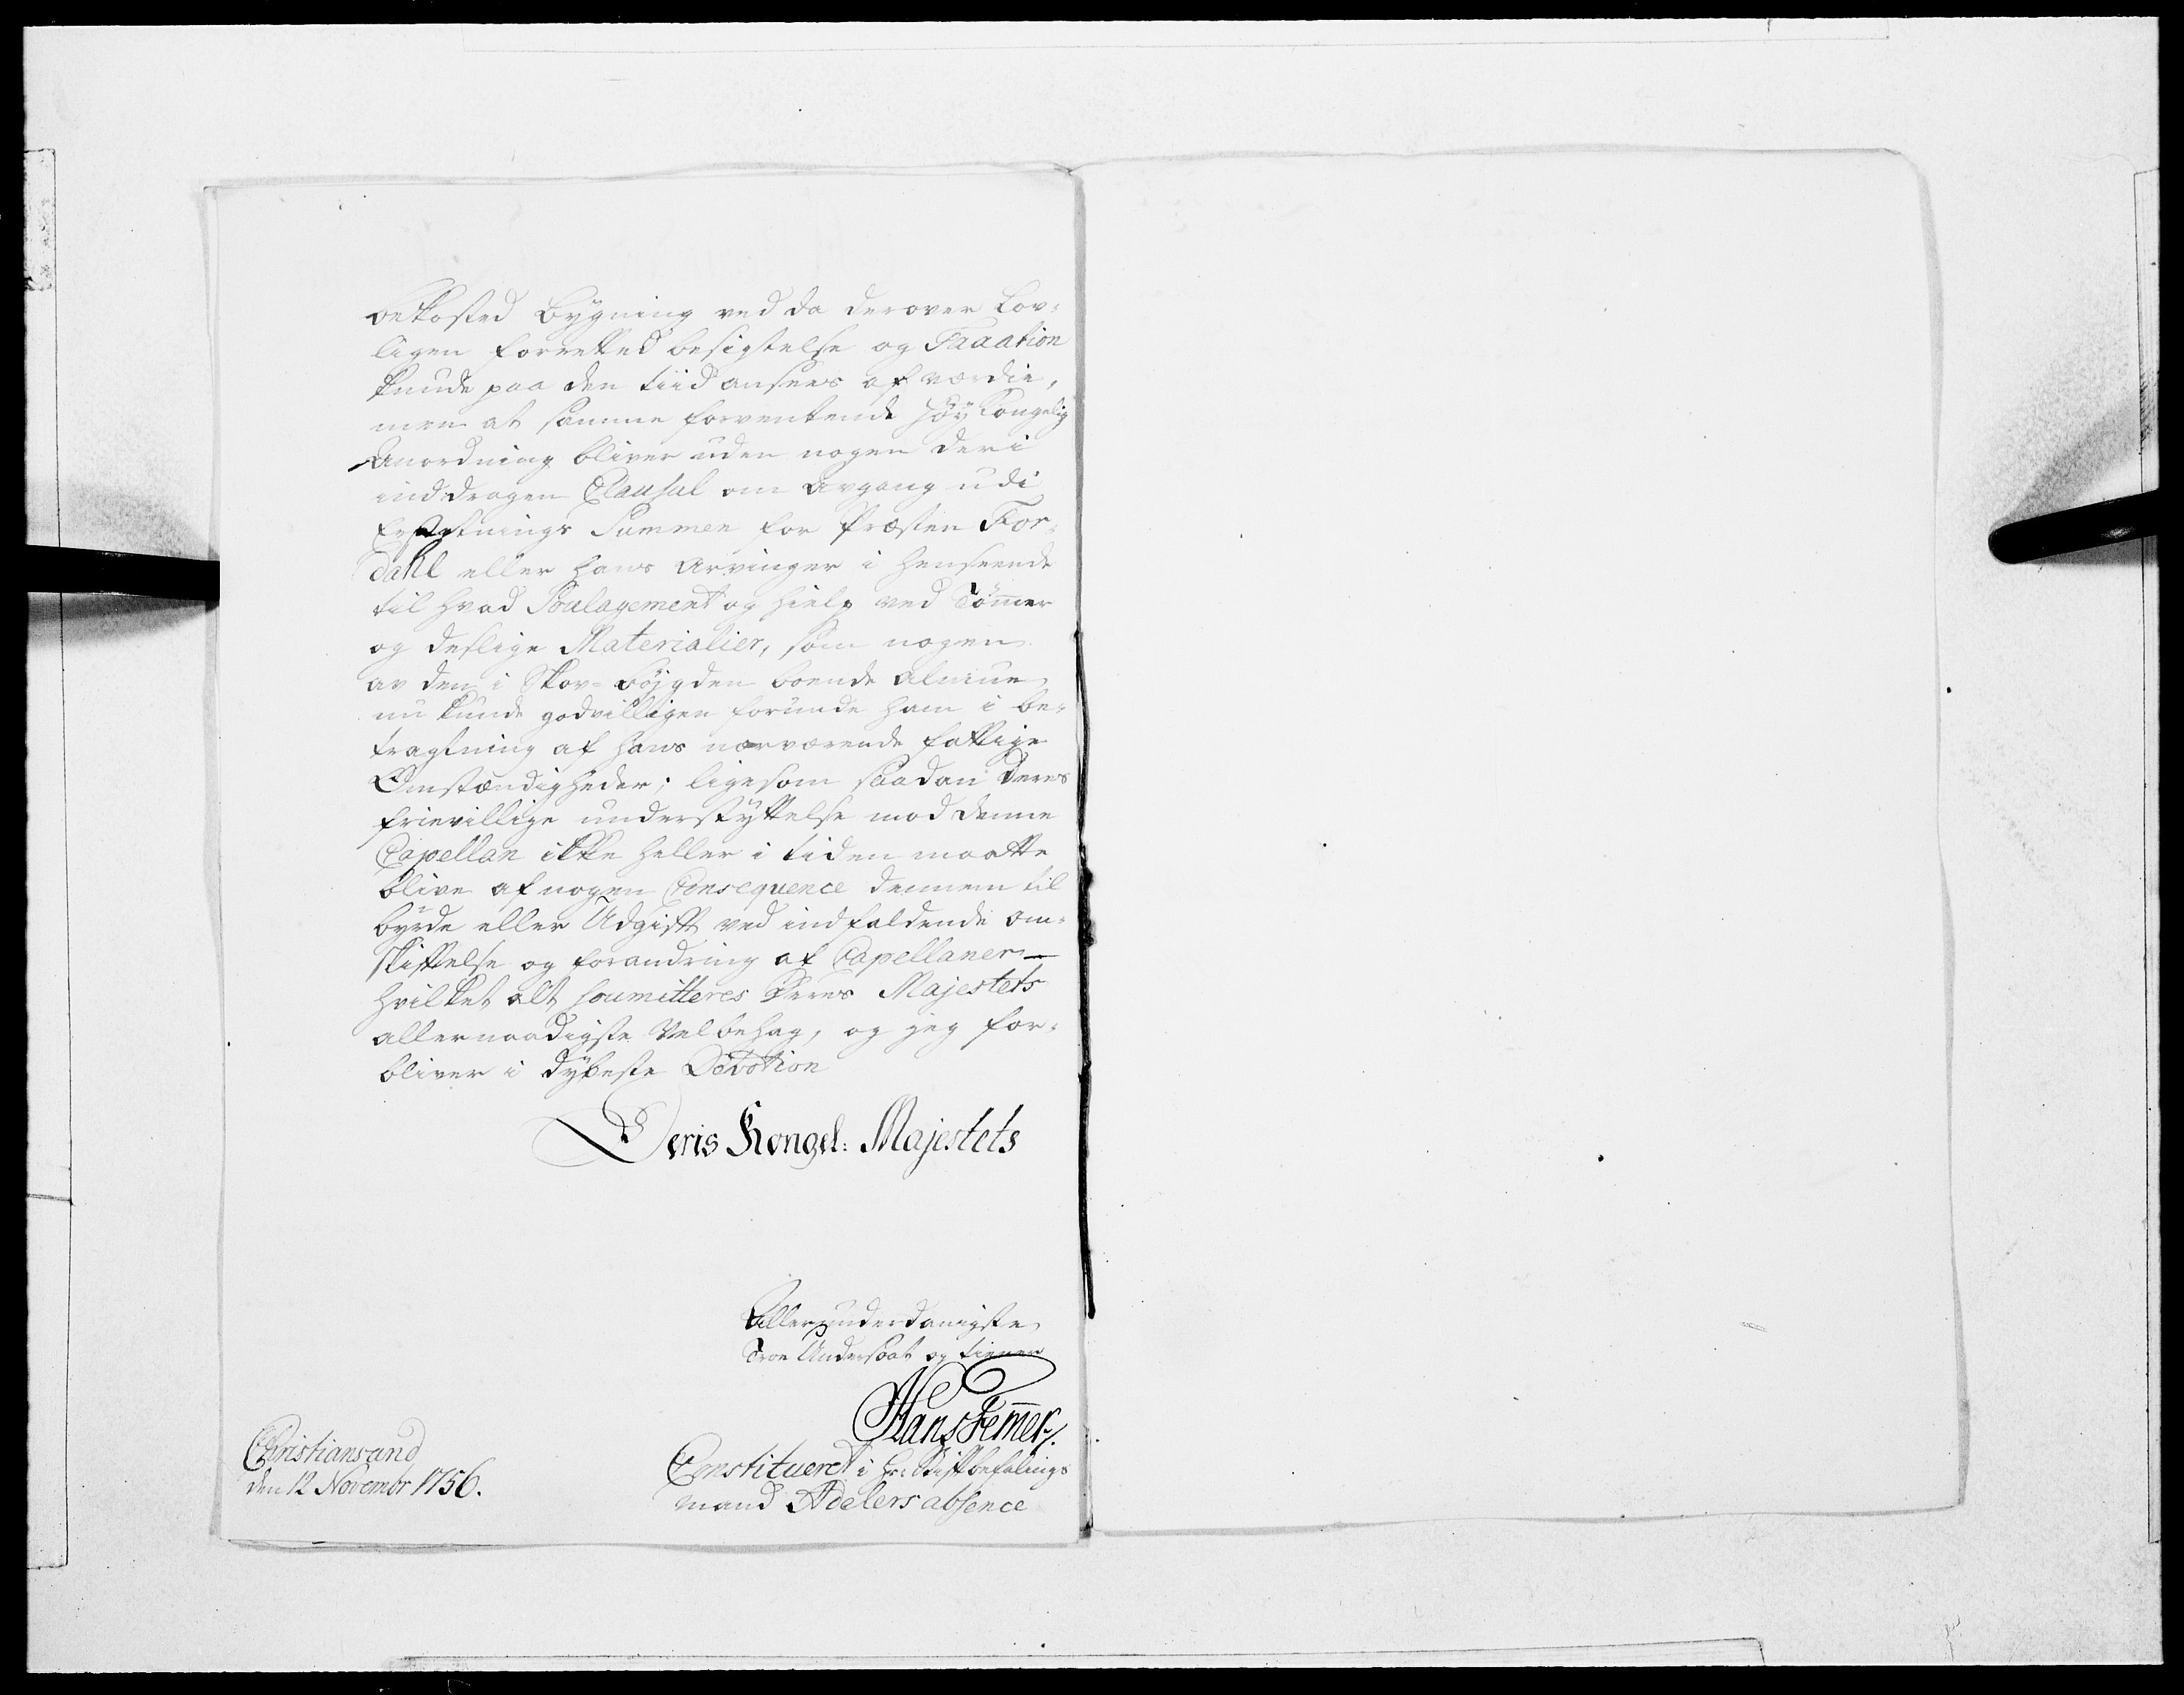 bekosted Bygning ved da derover Lov-
ligen forretted besigtelse og Taxation
kunde paa den tiid ansees af værdie,
men at samme forventende Høy Kongelig
Anordning bliver uden nogen deri
inddragen Clausul om Avgang udi
Erstatnings Summen for Præsten For-
dahl eller hans Arvinger i henseende
til hvad Soulagement og hielp ved Tømer
og deslige Materialier, som nogen
av den i Skov-bøjgden boende Almue
nu kunde godvilligen forunde ham i be-
tragtning af hans nærværende fattige
Omstændigheder; ligesom saadan deres
frievillige understyttelse mod denne
Capellan ikke heller i tiden maatte
blive af nogen Consequence dennem til
byrde eller Udgift ved indfaldende om-
skiftelse og forandring af Capellaner —
hvilket alt soumitteres Deres Majestets
allernaadigste Velbehag, og jeg for-
bliver i dybeste Devotion
Deris Kongel: Majestets
Allerunderdanigste
Troe Undersaat og tiener
Hans Femer
Christiansand
den 12 Novembr 1756.
Constitueret i Hr: Stiftbefalings
mand Adelers absence